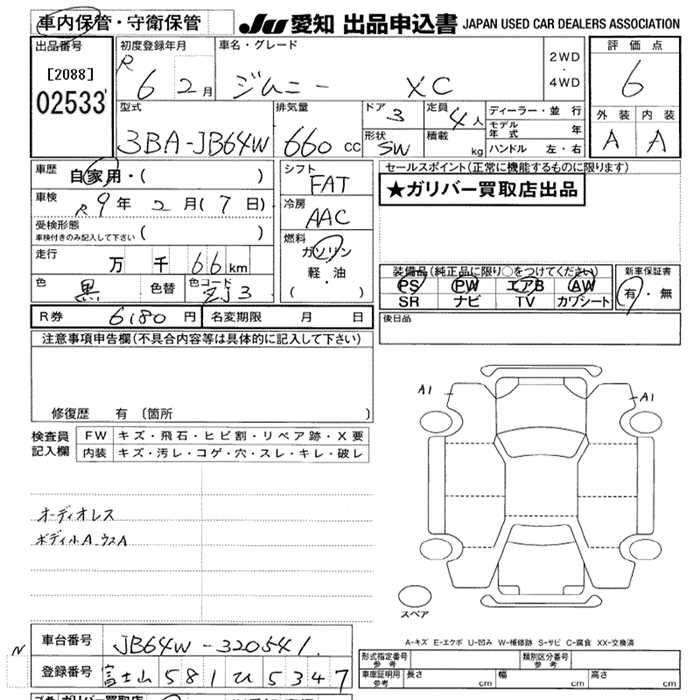 車内保管・守衛保管
JU 愛知 出品申込書 JAPAN USED CAR DEALERS ASSOCIATION
出品番号
[2088]
02533
初度登録年月
R 6 2月
車名・グレード
ジムニー XC
2WD
・
4WD
評価点
6
外装 内装
A A
型式
3BA-JB64W
排気量
660 cc
ドア 3
形状 SW
定員 4人
積載 kg
ディーラー・並行
モデル年式 年
ハンドル 左・右
車歴
自家用・( )
車検
R 9年 2月(7日)
受検形態
車検付きのみ記入して下さい ( )
走行
万 千 66 km
色 黒 色替 色コード ZJ3
シフト
FAT
冷房
AAC
燃料
ガソリン
軽・油
( )
セールスポイント(正常に機能するものに限ります)
★ガリバー買取店出品
装備品(純正品に限り○をつけてください)
PS PW エアB AW
SR ナビ TV カワシート
新車保証書
有・無
R券 6180円 名変期限 月 日
後日品
注意事項申告欄(不具合内容等は具体的に記入して下さい)
修復歴 有 〔箇所 〕
検査員記入欄
FW キズ・飛石・ヒビ割・リペア跡・X要
内装 キズ・汚レ・コゲ・穴・スレ・キレ・破レ
オーディオレス
ボディ小A.ウスA
A1
A1
スペア
A-キズ E-エクボ U-凹み W-補修跡 S-サビ C-腐食 XX-交換済
車台番号 JB64W-320541
N
登録番号 富士山 581 ひ 5347
形式指定番号 参考
類別区分番号 参考
車庫証明用 参考 長さ cm 幅 cm 高さ cm
ガリバー買取店